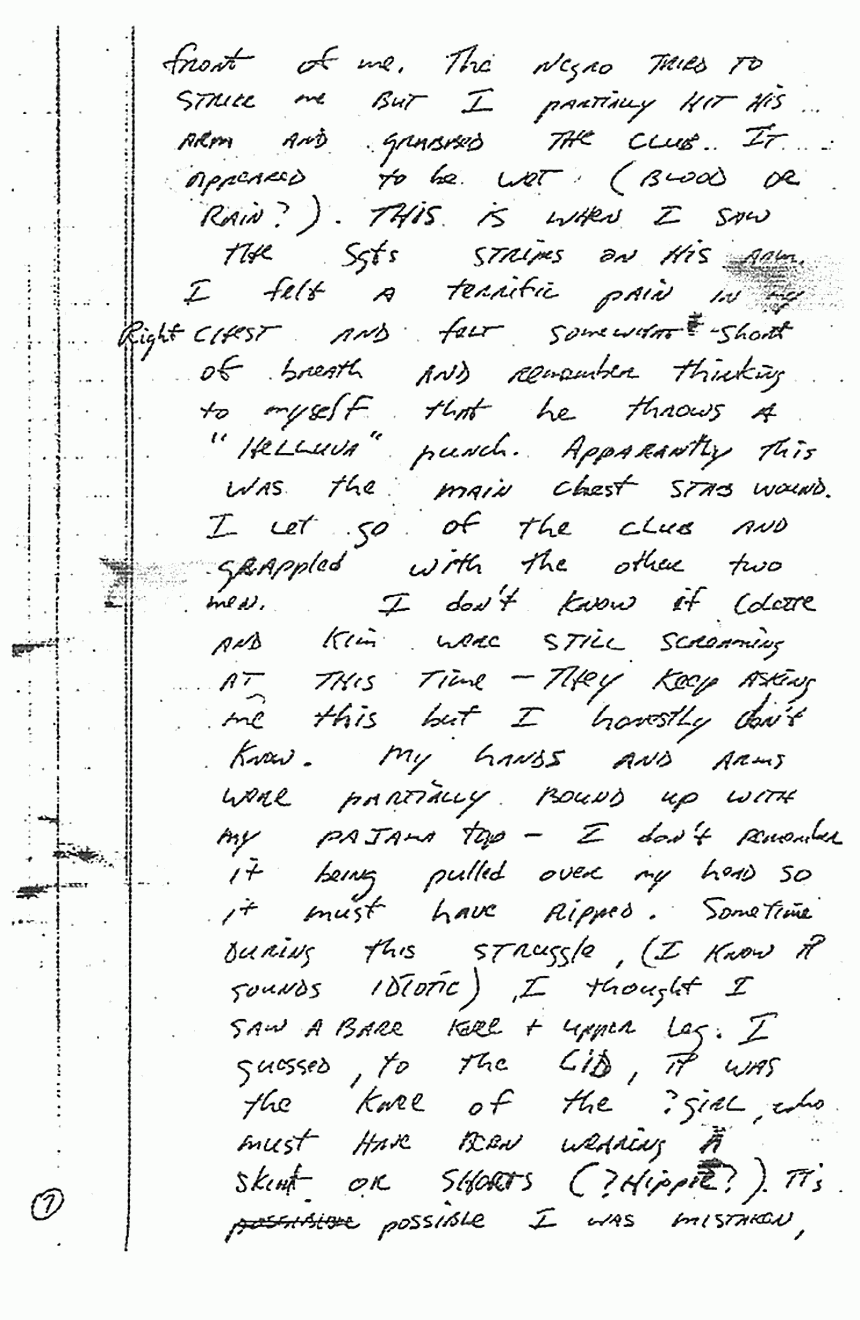 front of me. The Negro TRIED TO
STRIKE me BUT I PARTIALLY HIT HIS
ARM AND GRABBED THE CLUB. IT
APPEARED to be WET (BLOOD OR
RAIN?). THIS IS WHEN I SAW
THE Sgts STRIPES ON HIS ARM.
I felt A terrific pain IN my
Right CHEST AND felt somewhat short
of breath AND remember thinking
to myself that he throws A
"HELLUVA" punch. APPARANTLY this
WAS the MAIN chest STAB WOUND.
I LET go of the CLUB AND
GRAPPled with the other two
men. I don't KNOW if Colette
AND Kim WERE STILL SCREAMING
AT THIS TIME - THEY KEEP ASKING
me this but I honestly don't
KNOW. My hANDS AND ARMS
WERE PARTIALLY BOUND up WITH
my PAJAMA top - I don't remember
it being pulled over my head so
it must have RIPPED. Sometime
DURING this STRUGGLE, (I KNOW it
SOUNDS IDIOTIC), I thought I
SAW A BARE KNEE + upper Leg. I
guessed, to the CID, it WAS
the KNEE of the ?GIRL, who
must HAVE BEEN WEARING A
SKIRT OR SHORTS (?Hippie?). It's
possible I WAS MISTAKEN,
7